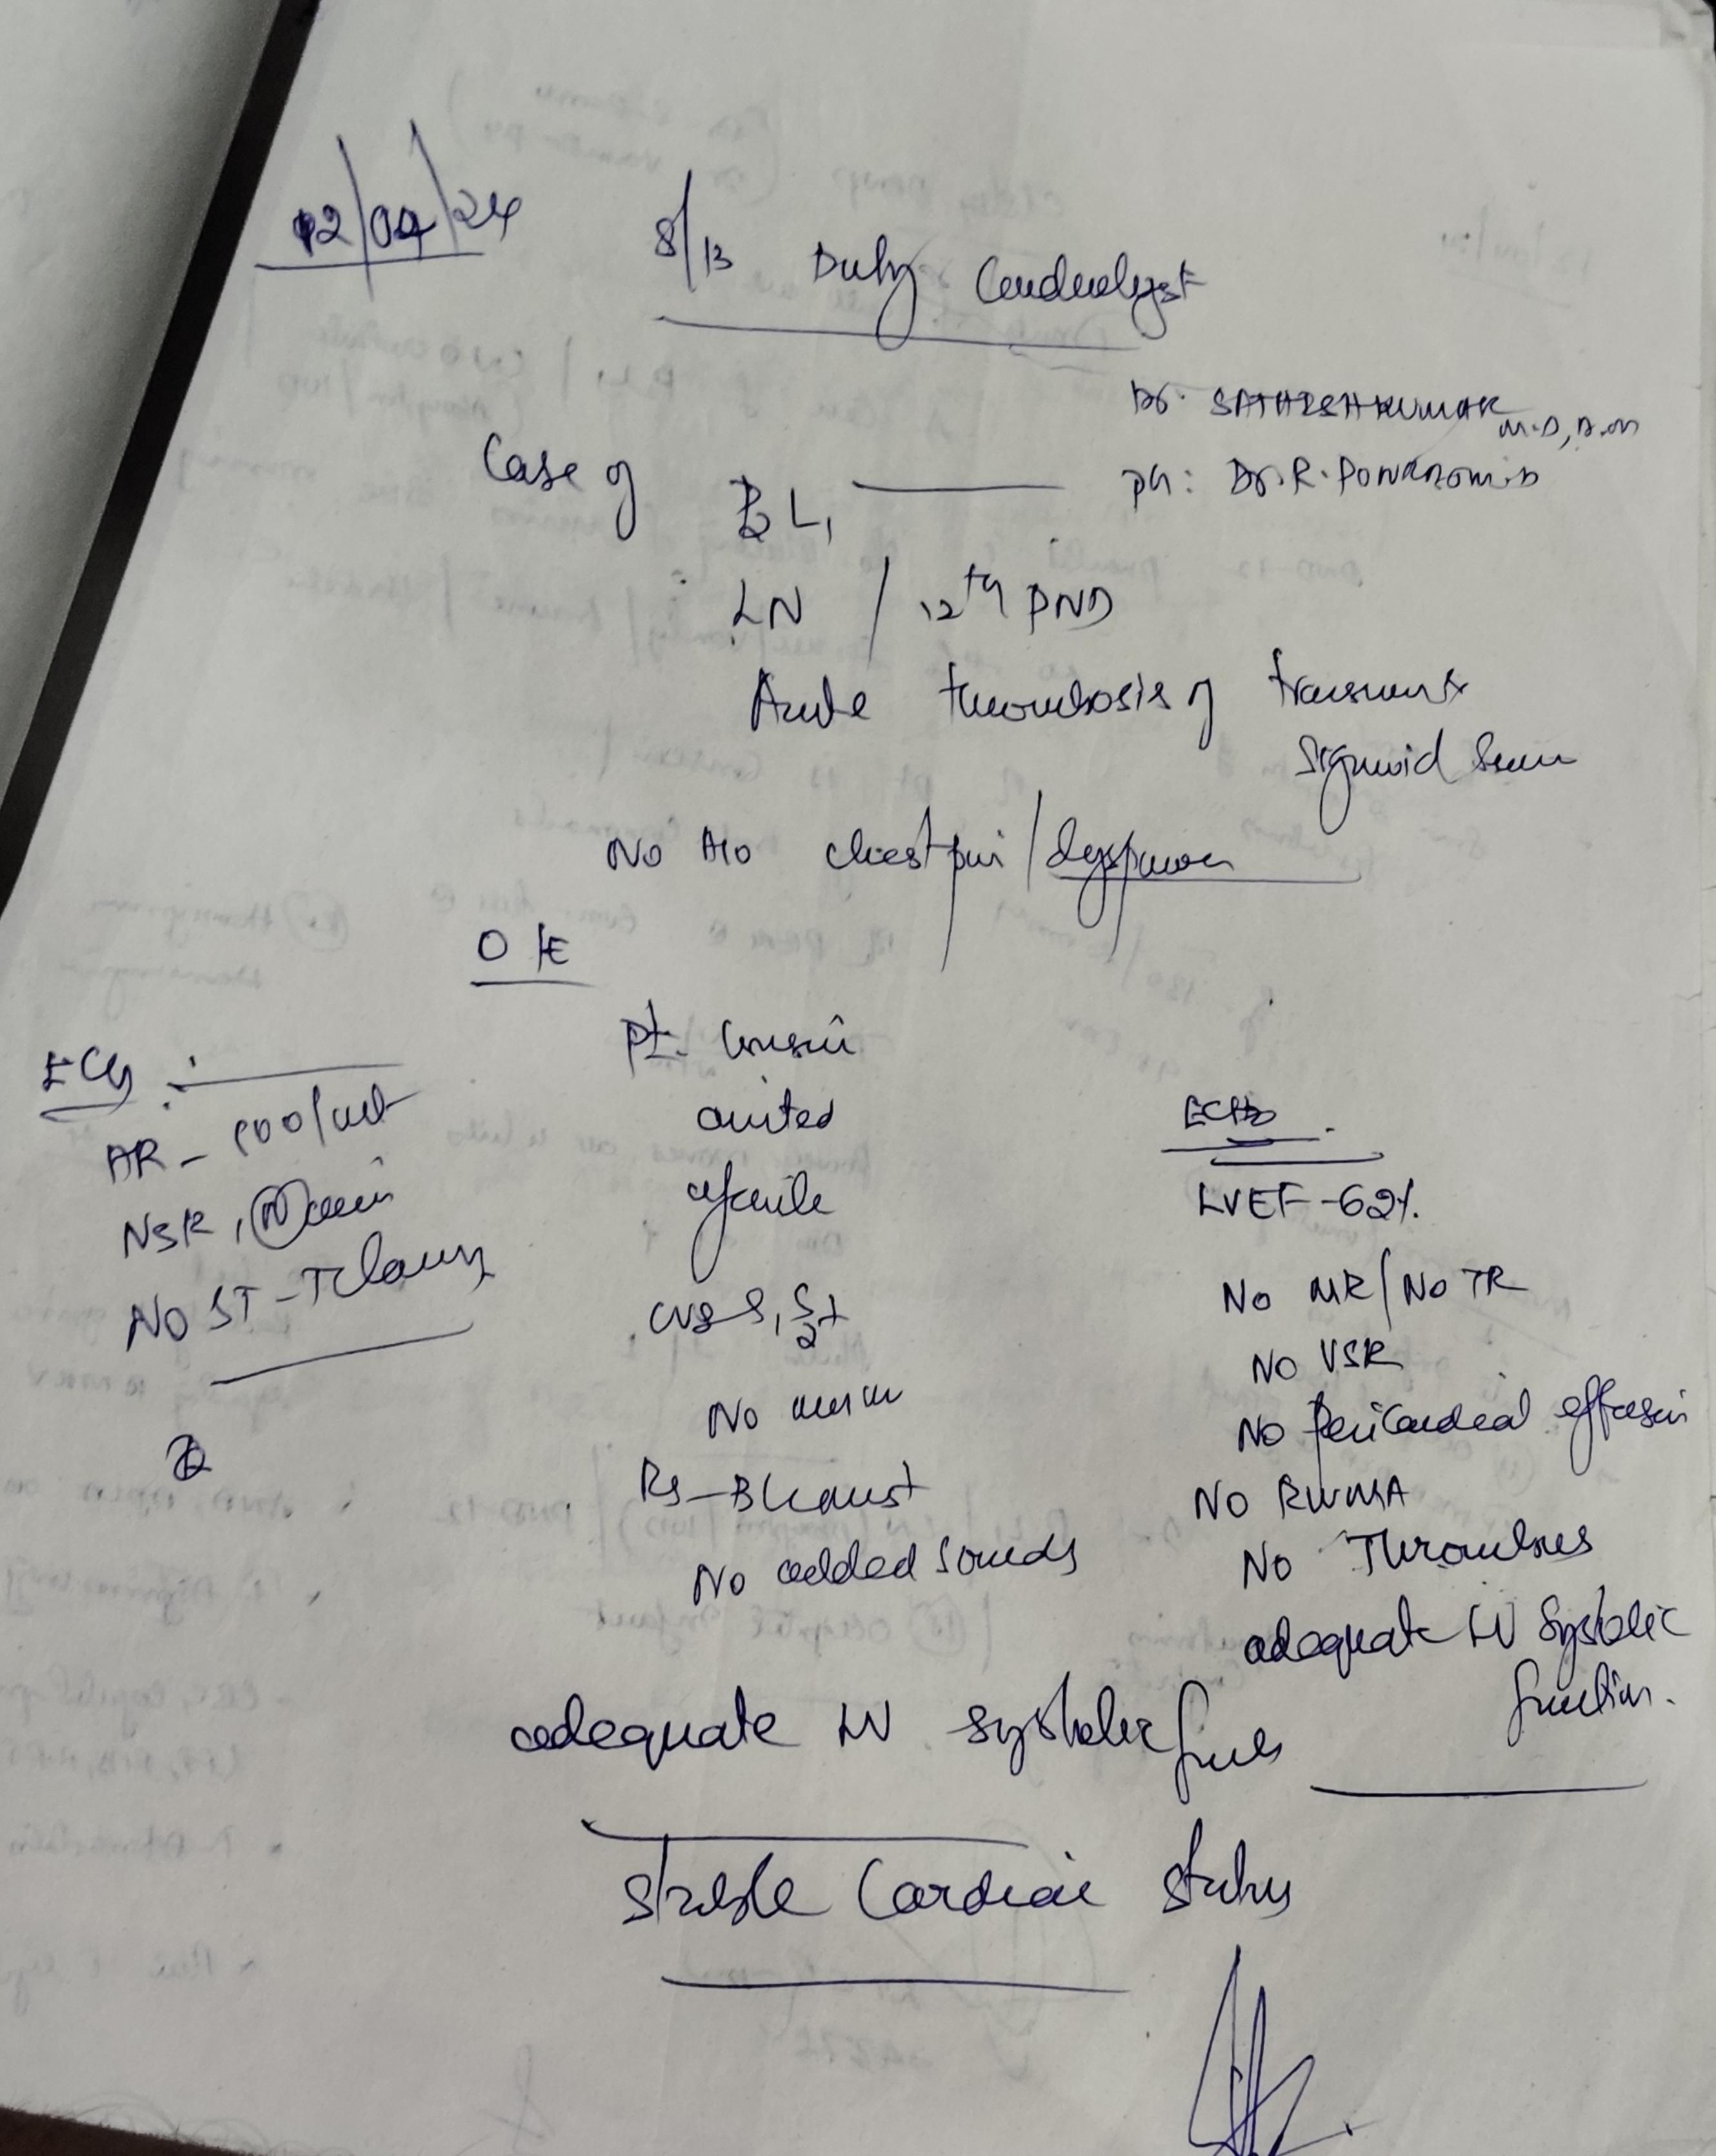 12/04/24
S/B Duty Cardiologist
Dr. SATHISHKUMAR M.D, D.M
Case of P2L1 PG: Dr. R.
LN / 12th PND
Acute thrombosis of transverse
Sigmoid Sinus
No H/o chest pain / dyspnoea
O/E
Pt. Conscio
oriented
afebrile
CVS S1, S2 +
No murmur
RS - BL
No added sounds
ECG :
AR - 100/
NSR, (N) axis
No ST-T changes
ECHO .
LVEF - 62%.
No MR / No TR
No VSR
No Pericardial effusion
No RWMA
No Thrombus
adequate LV Systolic
function.
adequate LV systolic func
Stable Cardiac Status